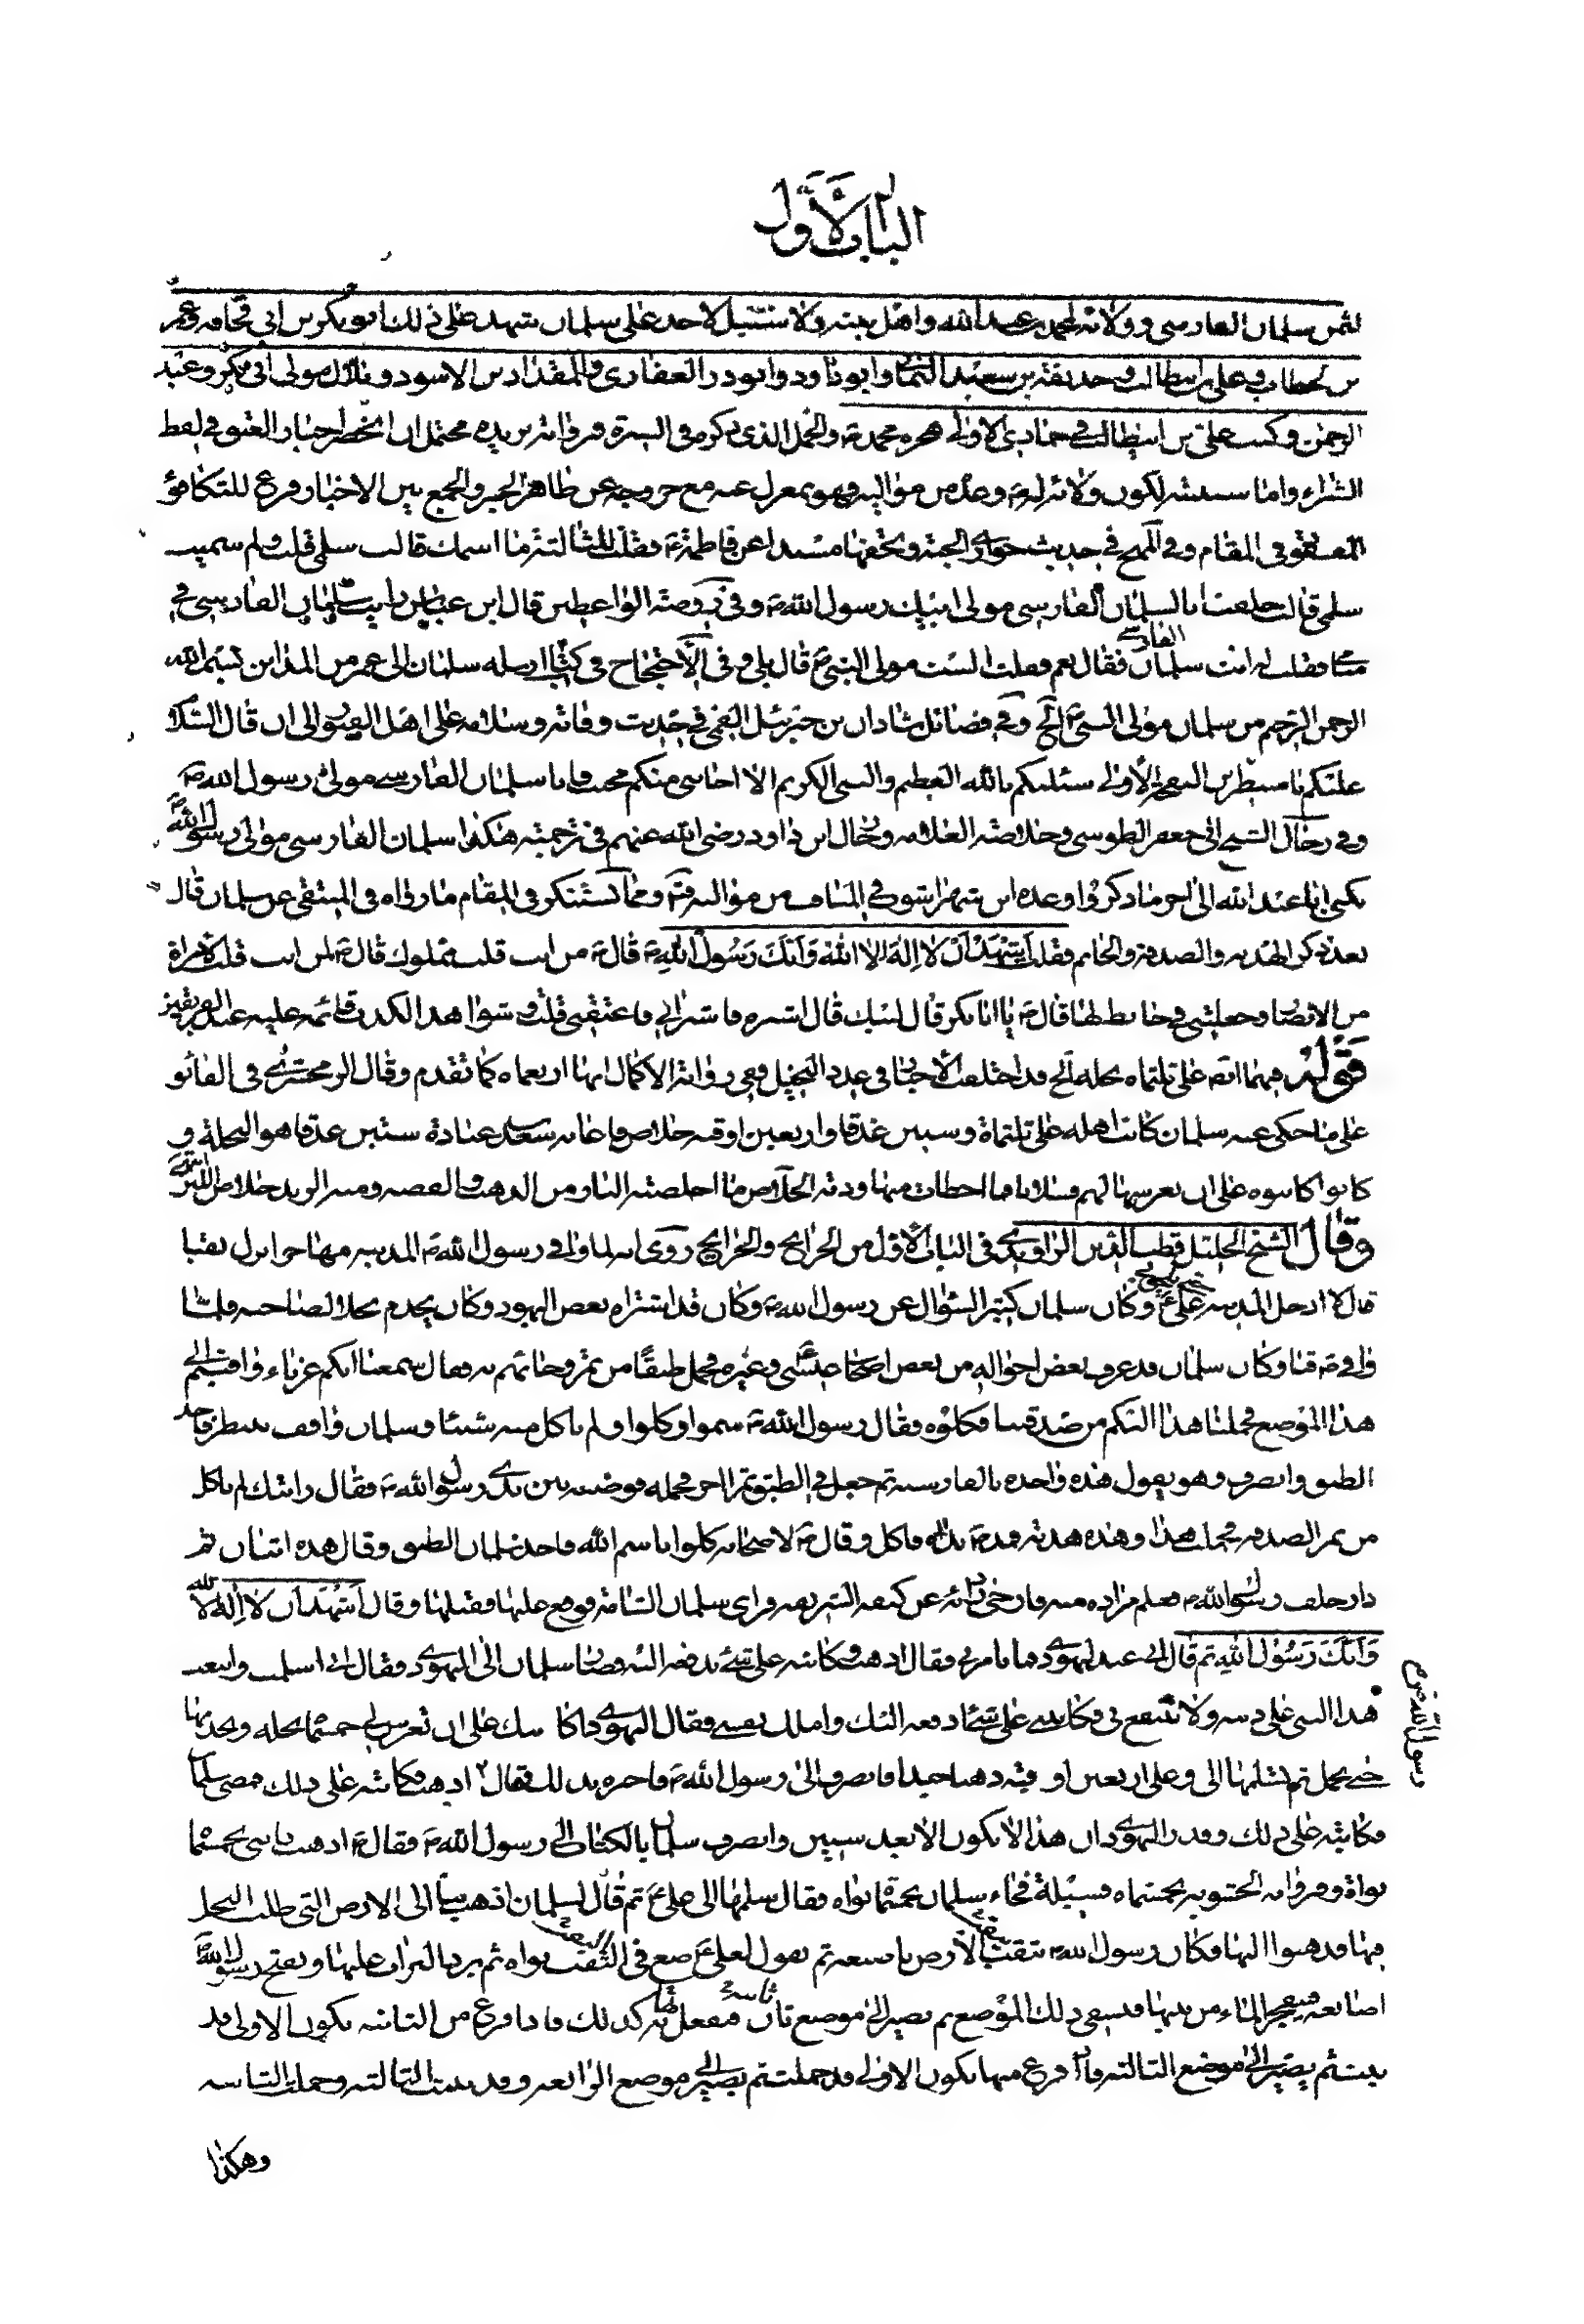 الباب الأول
لثمن سلمان الفارسي وولائه لمحمد بن عبد الله واهل بيته ولا سبيل لاحد على سلمان شهد على ذلك ابو بكر بن ابي قحافه وعمر
بن الخطاب وعلي بن ابيطالب وحذيفة بن سعيد اليمان وابو ذر الغفاري والمقداد بن الاسود وبلال مولى ابي بكر وعبد
الرحمن وكتب علي بن ابيطالب في جمادي الاولى هجره محمد ص والجمل الذي ذكره في السيرة من رواية بريده محتمل
الشراء واما لكون ولائه له ص وعد من مواليه فهو بمعزل عنه مع خروجه عن ظاهر الخبر والجمع بين الاخبار فرع للتكافؤ
في المقام وفي في حديث الجنة مسندا عن فاطمة ع فقلت للثالثة ما اسمك قالت سلمى قلت ولم سميت
سلمى قالت خلقت انا لسلمان الفارسي مولى ابيك رسول الله ص وفي روضة الواعظين قال ابن عباس رايت سلمان الفارسي في
منامي فقلت له انت سلمان الفارسي فقال نعم فقلت الست مولى النبي ص قال بلى وفي الاحتجاج في كتاب ارسله سلمان الى عمر من المداين بسم الله
الرحمن الرحيم من سلمان مولى النبي ص الخ وفي فضائل شاذان بن جبرئيل القمي في حديث وفاته وسلامه على اهل القبور الى ان قال السلام
عليكم يا منتظرين النفخة الاولى سئلتكم بالله العظيم والنبي الكريم الا اجابني منكم مجيب فانا سلمان الفارسي مولى رسول الله ص
وفي رجال الشيخ ابي جعفر الطوسي وخلاصة العلامه ورجال ابن داود رضي الله عنهم في ترجمته هكذا سلمان الفارسي مولى رسول الله ص
يكنى ابا عبد الله الى اخر ما ذكروا وعده ابن شهراشوب في المناقب من مواليه ص ومما يستنكر في المقام ما رواه في المنتقى عن سلمان قال
بعد ذكر الهديه والصدقة والخاتم فقلت اشهد ان لا اله الا الله وانك رسول الله ص قال ص من انت قلت مملوك قال ص لمن انت قلت لامراة
من الانصار جعلتني في حايط لها قال ص يا ابا بكر قال لبيك قال اشتره فاشتراني فاعتقني قلت وشواهد الكذب قائمه عليه
قوله فهنا انه على ثلثماه نخله الخ قد اختلف الاخبار في عدد النخيل ففي رواية الاكمال انها اربعماه كما تقدم وقال الزمخشري في الفائق
على ما حكى عنه سلمان كاتب اهله على ثلثماة وستين عذقا واربعين اوقيه خلاص فاعانه سعد بن عبادة ستين عذقا هو النخلة و
كانوا كاتبوه على ان يغرسها لهم فسلانا فما اخطات منها وديه الخلاص ما اخلصته النار من الذهب والفضه ومنه الزبد خلاص اللبن انتهى
وقال الشيخ الجليل قطب الدين الراوندي في الباب الاول من الخرايج والجرايح روي انه لما وافى رسول الله ص المدينه مهاجرا نزل بقبا
قال لا ادخل المدينه حتى يلحق بي علي ع وكان سلمان كثير السؤال عن رسول الله ص وكان قد اشتراه بعض اليهود وكان يخدم نخلا لصاحبه فلما
وافى ص قبا وكان سلمان قد عرف بعض احواله من بعض اصحاب عيسى ع وغيره فحمل طبقا من تمر وجائهم به فقال سمعنا انكم غرباء وافيتم الى
هذا الموضع فحملنا هذا اليكم من صدقتنا فكلوه فقال رسول الله ص سموا وكلوا ولم ياكل منه شيئا وسلمان واقف ينظر فاخذ
الطبق وانصرف وهو يقول هذه واحده بالفارسيه ثم جعل في الطبق تمرا اخر فحمله فوضعه بين يدي رسول الله ص فقال رايتك لم تاكل
من تمر الصدقه فحملت هذا وهذه هديه فمد ص يده فاكل وقال ص لاصحابه كلوا باسم الله فاخذ سلمان الطبق وقال هذه اثنان ثم
دار خلف رسول الله ص فعلم مراده منه فارخى ردائه عن كتفه الشريفه فراى سلمان الشامة فوقع عليها فقبلها وقال اشهد ان لا اله الا الله
وانك رسول الله ثم قال اني عبد ليهودي فما تامرني فقال اذهب فكاتبه على شئ ندفعه اليه فصار سلمان الى اليهودي فقال اني اسلمت واتبعت
هذا النبي على دينه ولا تنتفع بي فكاتبني على شئ ادفعه اليك واملك نفسي فقال اليهودي اكاتبك على ان تغرس لي خمسماه نخله وتخدمها
حتى تحمل ثم تسلمها الى وعلى اربعين اوقيه ذهبا جيدا فانصرف الى رسول الله ص فاخبره بذلك فقال اذهب فكاتبه على ذلك فمضى سلمان
فكاتبه على ذلك وقدر اليهودي ان هذا لا يكون الا بعد سنين وانصرف سلمان بالكتاب الى رسول الله ص فقال ص اذهب فاتني بخمسماه
نواة وفي رواية الحشويه بخمسماه فسيلة فجاء سلمان بخمسماه نواه فقال سلمها الى علي ع ثم قال لسلمان اذهب بنا الى الارض التي طلب النخل
فيها فذهبوا اليها فكان رسول الله ص يثقب الارض باصبعه ثم يقول لعلي ع ضع في الثقب نواه ثم يرد التراب عليها ويفتح رسول الله ص
اصابعه فينفجر الماء من بينها فيسقى ذلك الموضع ثم يصير الى موضع ثان فيفعل بها كذلك فاذا فرغ من الثانيه تكون الاولى قد
نبتت ثم يصير الى موضع الثالثه فاذا فرغ منها تكون الاولى قد حملت ثم يصير الى موضع الرابعه وقد نبتت الثالثه وحملت الثانيه
وهكذا